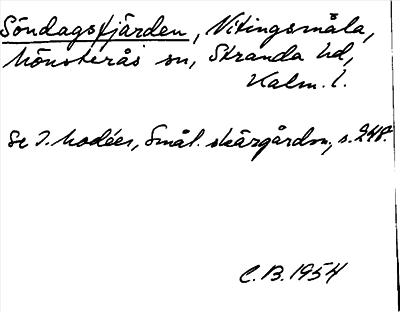 Söndagsfjärden, Vitingsmåla,
Mönsterås sn, Stranda hd,
Kalm. l.
Se I. Modéer, Smål. skärgårdsn., s. 248.
C.B. 1954